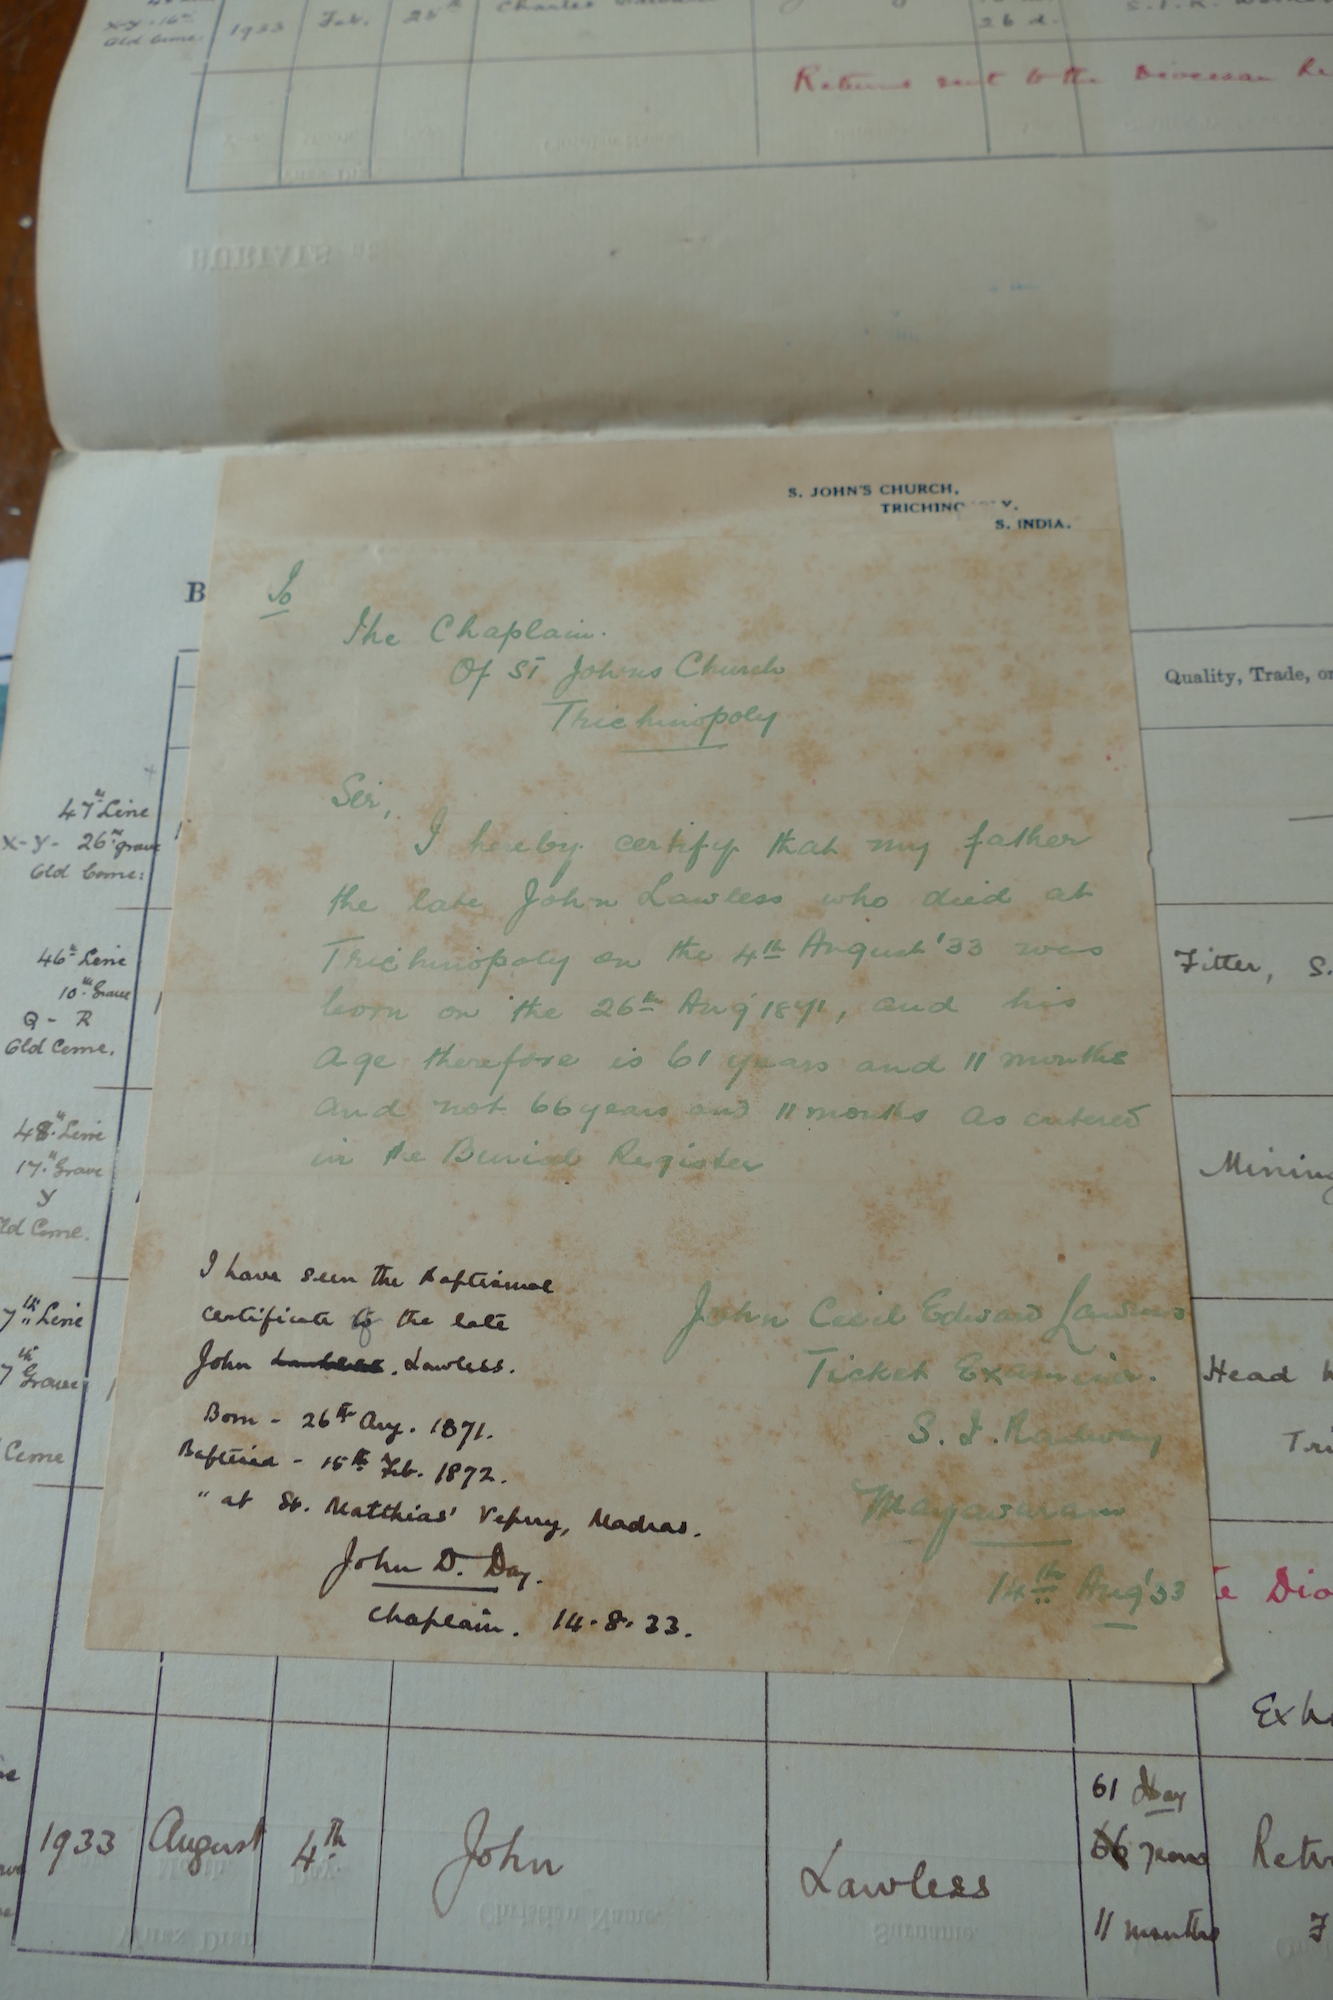 1933 Feb. 25th Charles
Old Ceme.
26 d.
Returns sent to the Diocesan Re
BURIALS at
S. JOHN'S CHURCH,
TRICHINO
S. INDIA.
B
Quality, Trade, or
To
The Chaplain.
Of St Johns Church
Trichinopoly
Sir,
I hereby certify that my father
the late John Lawless who died at
Trichinopoly on the 4th August '33 was
born on the 26th Aug 1871, and his
age therefore is 61 years and 11 months
and not 66 years and 11 months as entered
in the Burial Register
John Cecil Edward Lawless
Ticket Examiner.
S. I. Railway
Mayavaram
14th Aug '33
I have seen the Baptismal
certificate of the late
John Lawless.
Born - 26th Aug. 1871.
Baptised - 15th Feb. 1872.
" at St. Matthias' Vepery, Madras.
John D. Day.
Chaplain. 14.8.33.
47th Line
X-Y- 26th grave
Old Ceme:
46th Line
10th Grave
Q - R
Old Ceme.
48th Line
17th Grave
Y
Old Ceme.
7th Line
7th Grave
Ceme
Fitter, S.
Mining
Head
Tri
te Dio
1933 August 4th John Lawless
61 Day
66 years
11 months
Christian Name.
Surname.